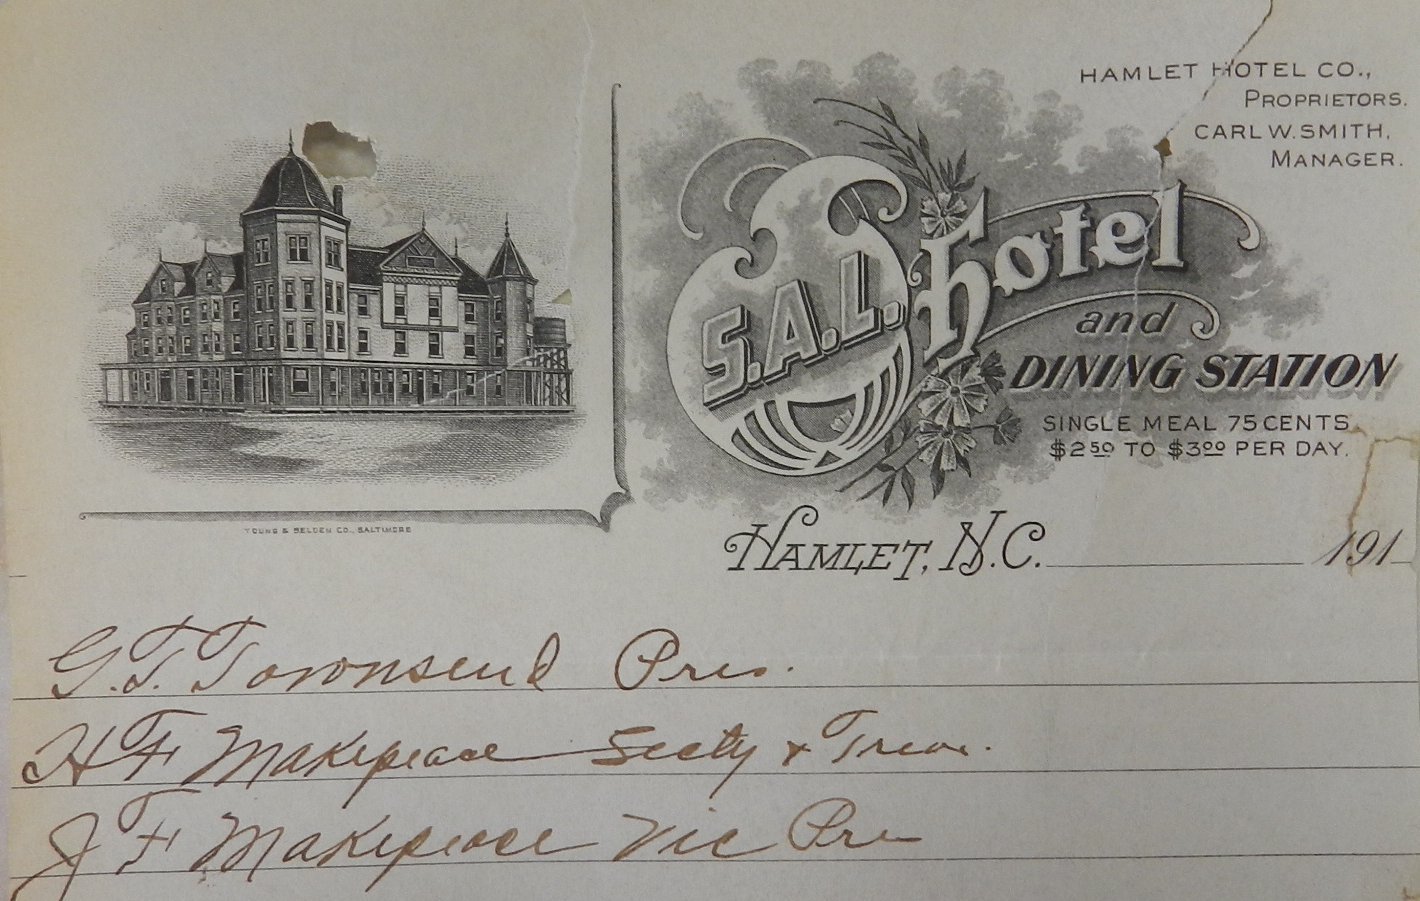 HAMLET HOTEL CO.,
PROPRIETORS.
CARL W. SMITH,
MANAGER.
S.A.L. hotel
and
DINING STATION
SINGLE MEAL 75 CENTS
$2.50 TO $3.00 PER DAY.
YOUNG & SELDEN CO., BALTIMORE
HAMLET, N.C. 191
G.T. Townsend Pres.
H F Makepeace Secty & Treas.
J F Makepeace Vic Pre